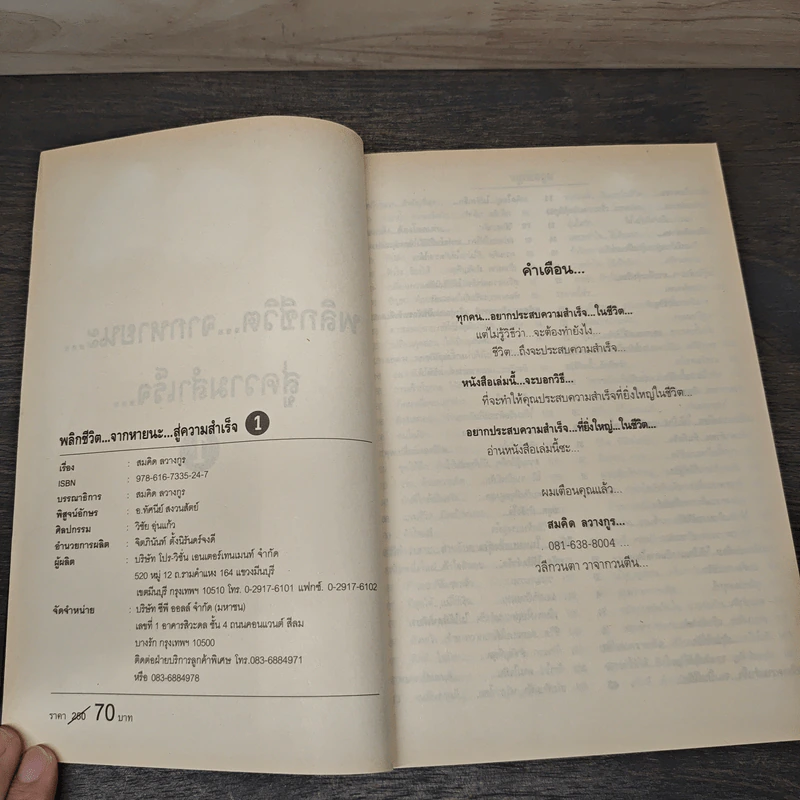 พลิกชีวิต...จากหายนะ...สู่ความสำเร็จ 1
เรื่อง : สมคิด ลวางกูร
ISBN : 978-616-7335-24-7
บรรณาธิการ : สมคิด ลวางกูร
พิสูจน์อักษร : อ.ทัศนีย์ สงวนสัตย์
ศิลปกรรม : วิชัย อุ่นแก้ว
อำนวยการผลิต : จิตภินันท์ ตั้งนิรันดร์จงดี
ผู้ผลิต : บริษัท โปร-วิชั่น เอนเตอร์เทนเมนท์ จำกัด
520 หมู่ 12 ถ.รามคำแหง 164 แขวงมีนบุรี
เขตมีนบุรี กรุงเทพฯ 10510 โทร. 0-2917-6101 แฟกซ์. 0-2917-6102
จัดจำหน่าย : บริษัท ซีพี ออลล์ จำกัด (มหาชน)
เลขที่ 1 อาคารสิวะดล ชั้น 4 ถนนคอนแวนต์ สีลม
บางรัก กรุงเทพฯ 10500
ติดต่อฝ่ายบริการลูกค้าพิเศษ โทร.083-6884971
หรือ 083-6884978
ราคา 250 70 บาท
คำเตือน...
ทุกคน...อยากประสบความสำเร็จ...ในชีวิต...
แต่ไม่รู้วิธีว่า...จะต้องทำยังไง...
ชีวิต...ถึงจะประสบความสำเร็จ...
หนังสือเล่มนี้...จะบอกวิธี...
ที่จะทำให้คุณประสบความสำเร็จที่ยิ่งใหญ่ในชีวิต...
อยากประสบความสำเร็จ...ที่ยิ่งใหญ่...ในชีวิต...
อ่านหนังสือเล่มนี้ซะ...
ผมเตือนคุณแล้ว...
สมคิด ลวางกูร...
081-638-8004 ...
วลีกวนตา วาจากวนตีน...